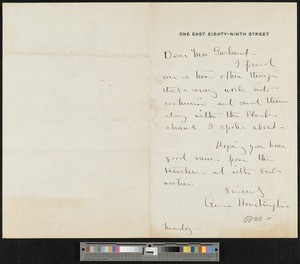 ONE EAST EIGHTY-NINTH STREET
Dear Miss Garland -
I found
one or two other things
that may work into
costumes and send them
along with the black
shawl I spoke about -
Hoping you have
good news from the
and with best
wishes
Sincerely
Anna Huntington
Monday -